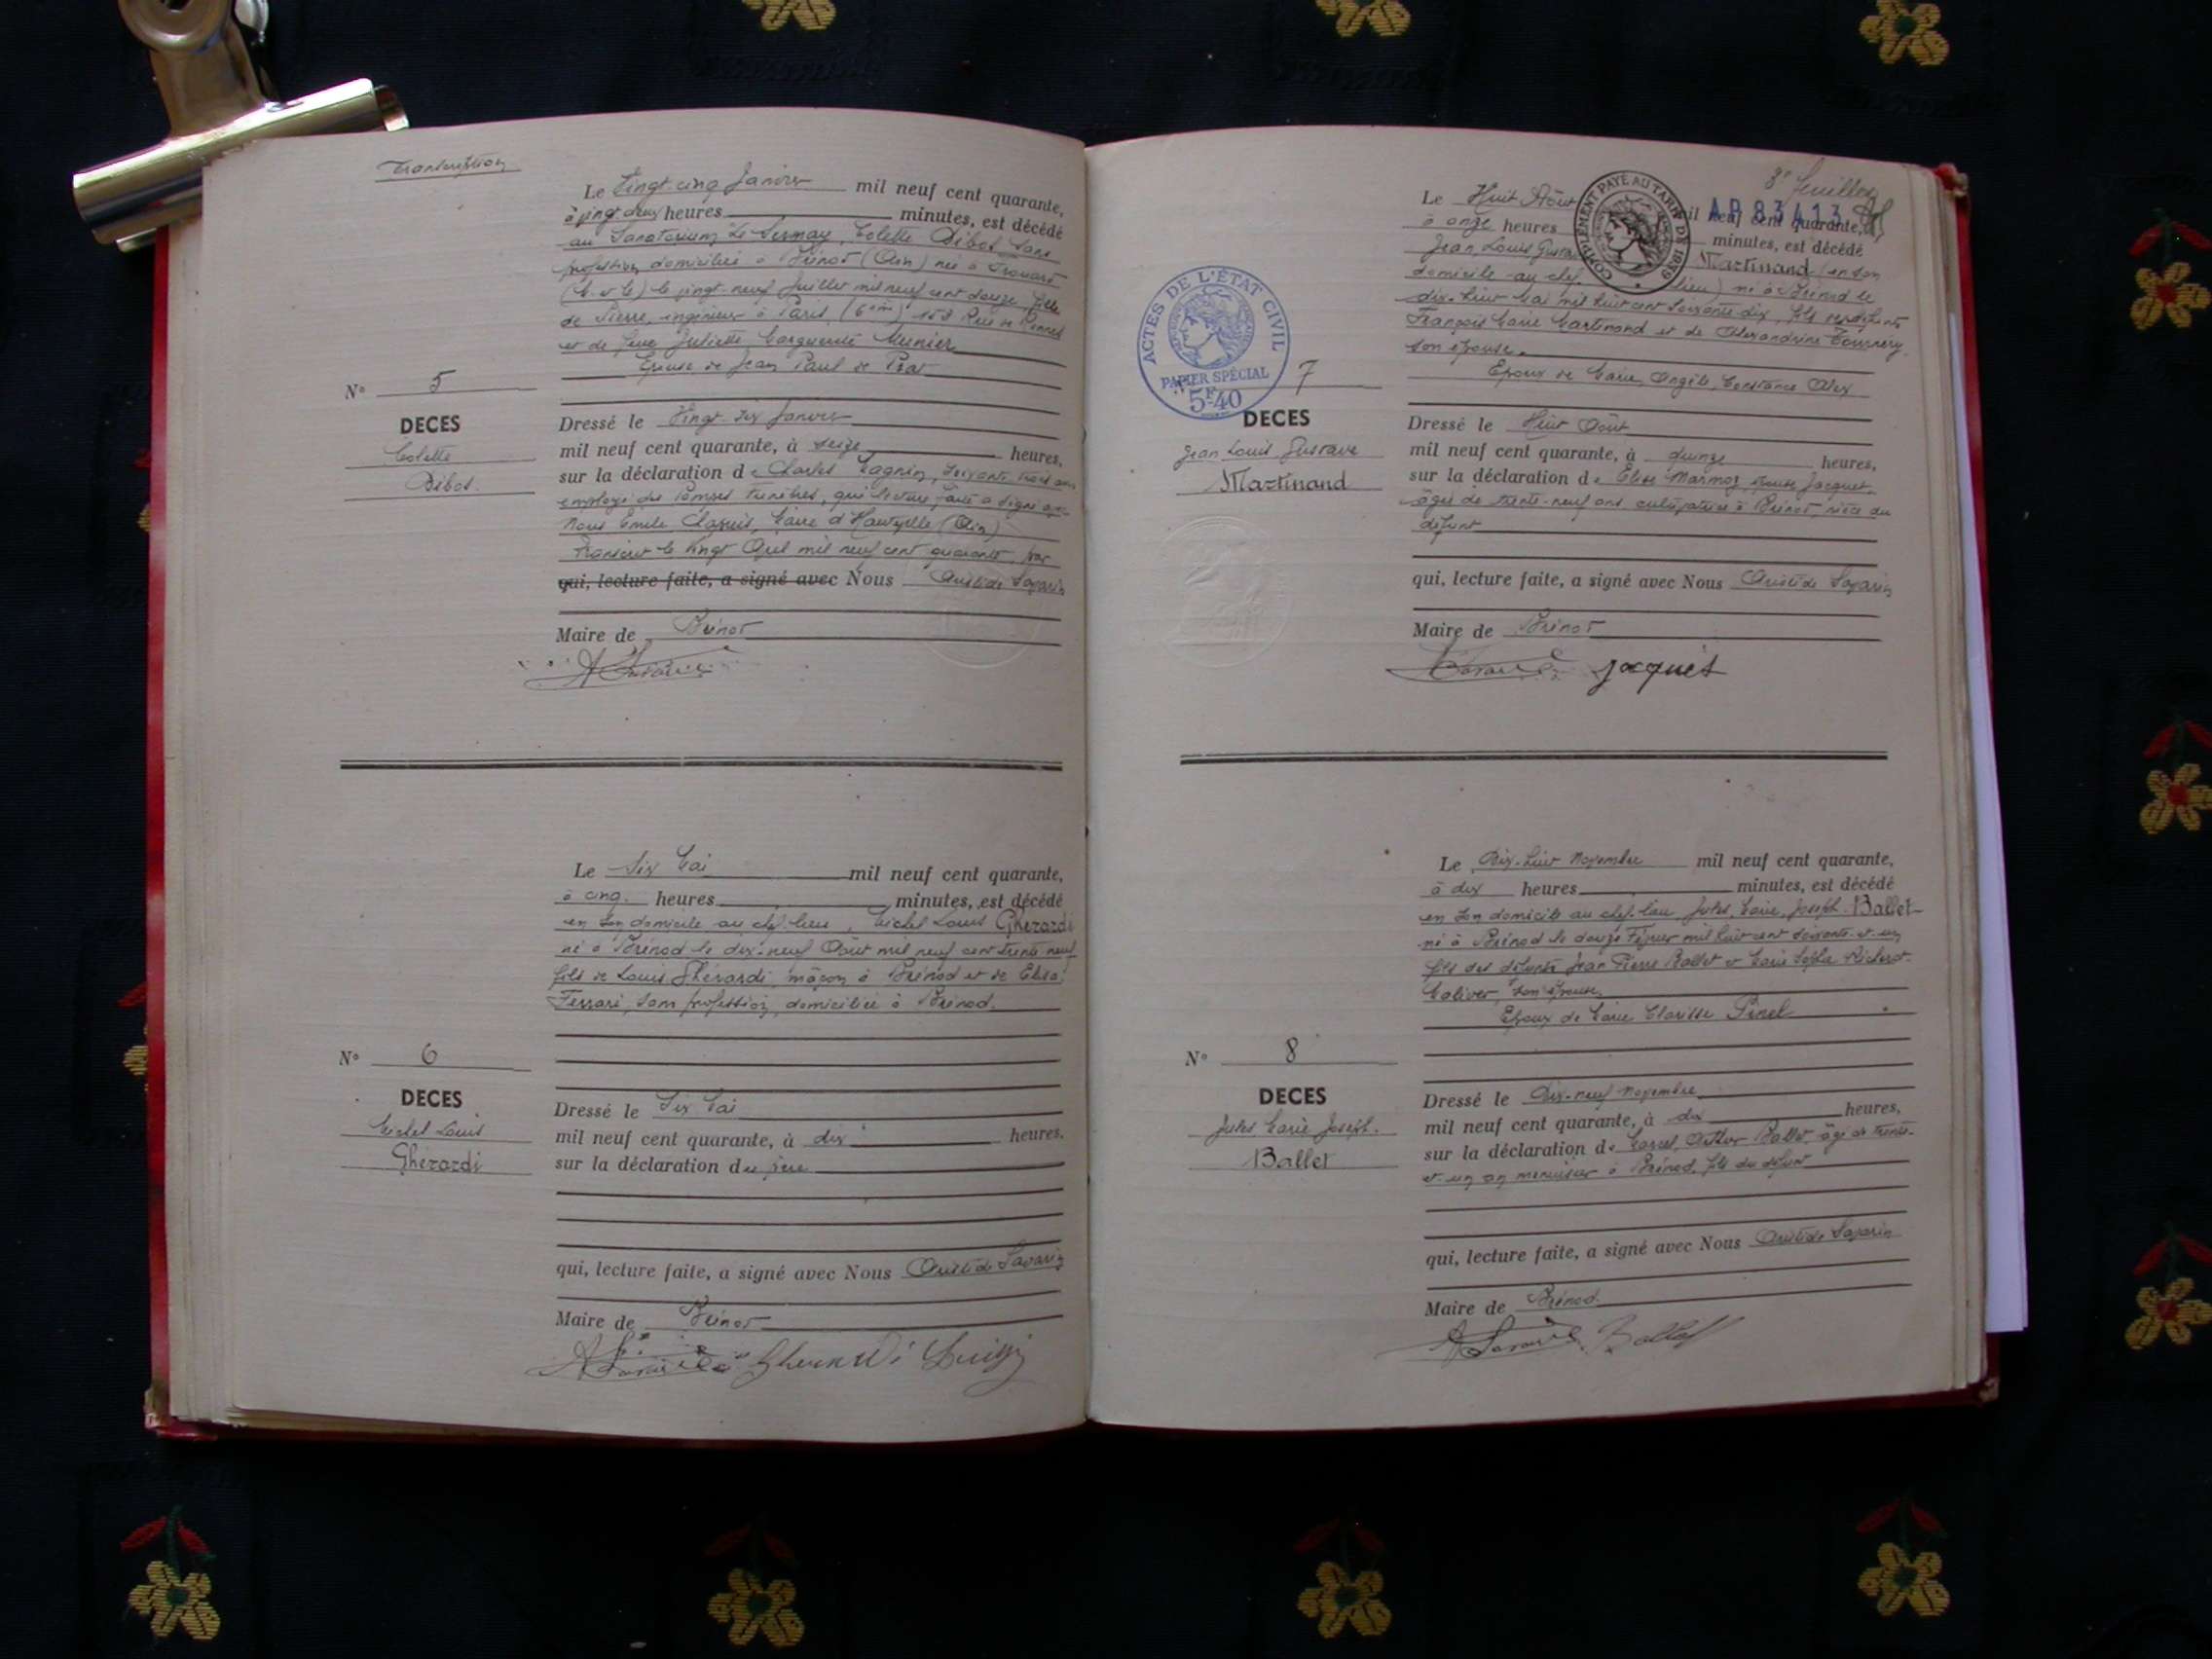 Transcription
Le Vingt-cinq Janvier mil neuf cent quarante,
à vingt deux heures minutes, est décédé
au Sanatorium Colette Dibot, sans
profession domiciliée à Brénod (Ain) née à Frouard
(M. et M.) le vingt-neuf Juillet mil neuf cent douze, fille
de Pierre, ingénieur à Paris (6ème) Rue de Rennes
et de feue Juliette Marguerite Munier
Epouse de Jean Paul de
N° 5
DECES
Colette
Dibot.
Dressé le Vingt-six Janvier
mil neuf cent quarante, à seize heures,
sur la déclaration de Charles soixante trois ans
employé des Pompes funèbres, qui lecture faite a signé avec
Nous Emile Maire d'Hauteville (Ain)
Transcrit le vingt Avril mil neuf cent quarante, par
qui, lecture faite, a signé avec Nous Aristide Savarin
Maire de Brénod
Le Six Mai mil neuf cent quarante,
à cinq heures minutes, est décédé
en son domicile au chef-lieu, Michel Louis Ghérardi
né à Brénod le dix-neuf Août mil neuf cent trente neuf
fils de Louis Ghérardi, maçon à Brénod et de Elisa
Ferrari, sans profession, domiciliée à Brénod.
N° 6
DECES
Michel Louis
Ghérardi
Dressé le Six Mai
mil neuf cent quarante, à dix heures.
sur la déclaration du père
qui, lecture faite, a signé avec Nous Aristide Savarin
Maire de Brénod
Gherardi Luigi
3e feuillet
AP 83413
COMPLÉMENT PAYÉ AU TARIF DE 1939
Le Huit Août mil neuf cent quarante,
à onze heures minutes, est décédé
Jean, Louis Martinand (en son
domicile au chef lieu) né à Brénod le
dix-huit Mai mil huit cent soixante-dix, fils des défunts
François Marie Martinand et de Alexandrine
son épouse.
Epoux de Marie, Angèle, Constance
ACTES DE L'ÉTAT CIVIL
PAPIER SPÉCIAL
5F40
7
DECES
Jean Louis Gustave
Martinand
Dressé le Huit Août
mil neuf cent quarante, à quinze heures,
sur la déclaration de Elise Marmoz, épouse Jacquet
âgée de trente-neuf ans cultivatrice à Brénod, nièce du
défunt
qui, lecture faite, a signé avec Nous Aristide Savarin
Maire de Brénod
Jacquet
Le Dix-huit Novembre mil neuf cent quarante,
à dix heures minutes, est décédé
en son domicile au chef-lieu, Jules, Marie, Joseph Ballet
né à Brénod le douze Février mil huit cent soixante-et-un
fils des défunts Jean Pierre Ballet et Marie Sophie
son épouse
Epoux de Marie Clarisse Pinel
N° 8
DECES
Jules Marie Joseph.
Ballet
Dressé le Dix-neuf Novembre
mil neuf cent quarante, à dix heures,
sur la déclaration de Marcel, Arthur Ballet, âgé de trente-
et-un an menuisier à Brénod, fils du défunt
qui, lecture faite, a signé avec Nous Aristide Savarin
Maire de Brénod.
Ballet